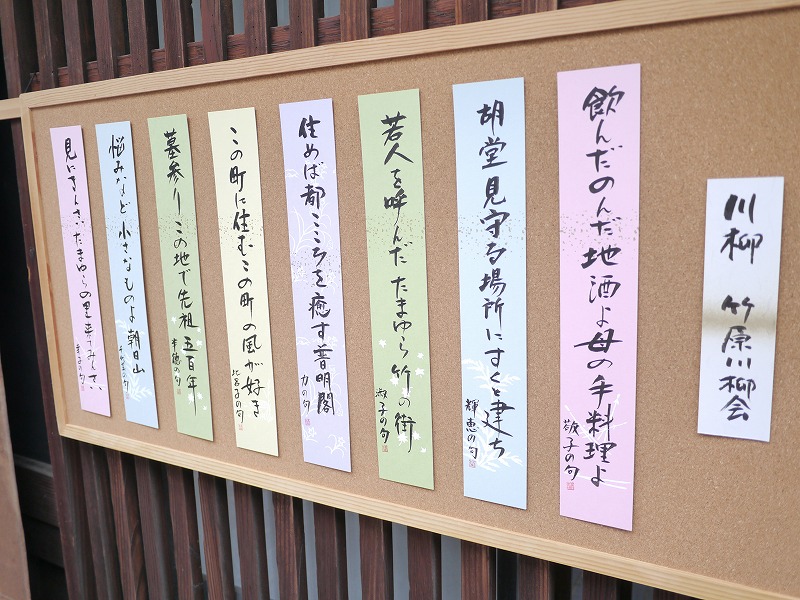 川柳 竹原川柳会
飲んだのんだ地酒よ母の手料理よ
敬子の句
胡堂見守る場所にすくと建ち
輝恵の句
若人を呼んだたまゆら竹の街
淑子の句
住めば都こころを癒す普明閣
力の句
この町に住むこの町の風が好き
の句
墓参りこの地で先祖五百年
の句
悩みなど小さなものよ朝日山
の句
見にきんさいたまゆらの里
の句